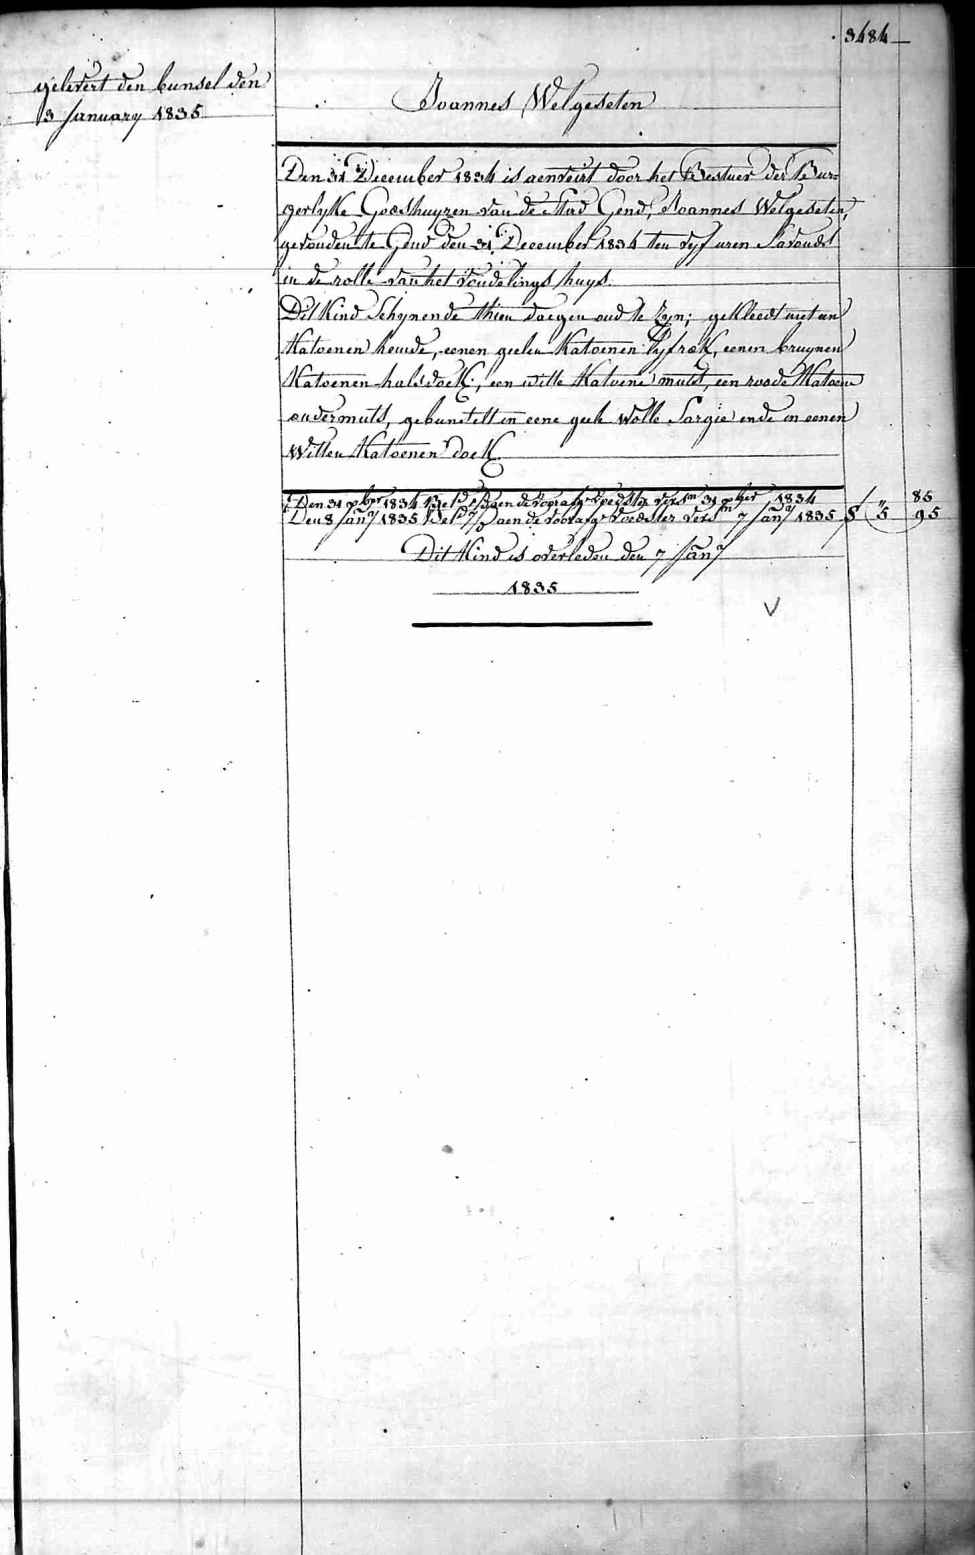 3484
gelevert den bunsel den
3 January 1835
Joannes Welgeseten
Den 31 December 1834 is aenveirt door het Bestuer der Bur=
gerlyke Godshuyzen van de stad Gend, Joannes Welgeseten,
gevonden te Gend den 31 December 1834 ten vyf uren S'avonds
in de rolle van het vondelings huys.
Dit Kind Schynende thien daegen oud te Zyn; gekleedt met een
Katoenen hemde, eenen geelen Katoenen lyfrok, eenen bruynen
Katoenen halsdoek, een witte Katoene muts, een roode Katoene
ondermuts, gebunselt in eene geele wolle Sargie ende in eenen
Witten Katoenen doek
Den 31 xber 1834 Bet aen de voorzg voedster vers 31 xber 1834 " 85
Den 8 Jany 1835 Bet aen de voorzg voedster vers 7 Jany 1835 5 95
Dit Kind is overleden den 7 Jany
1835